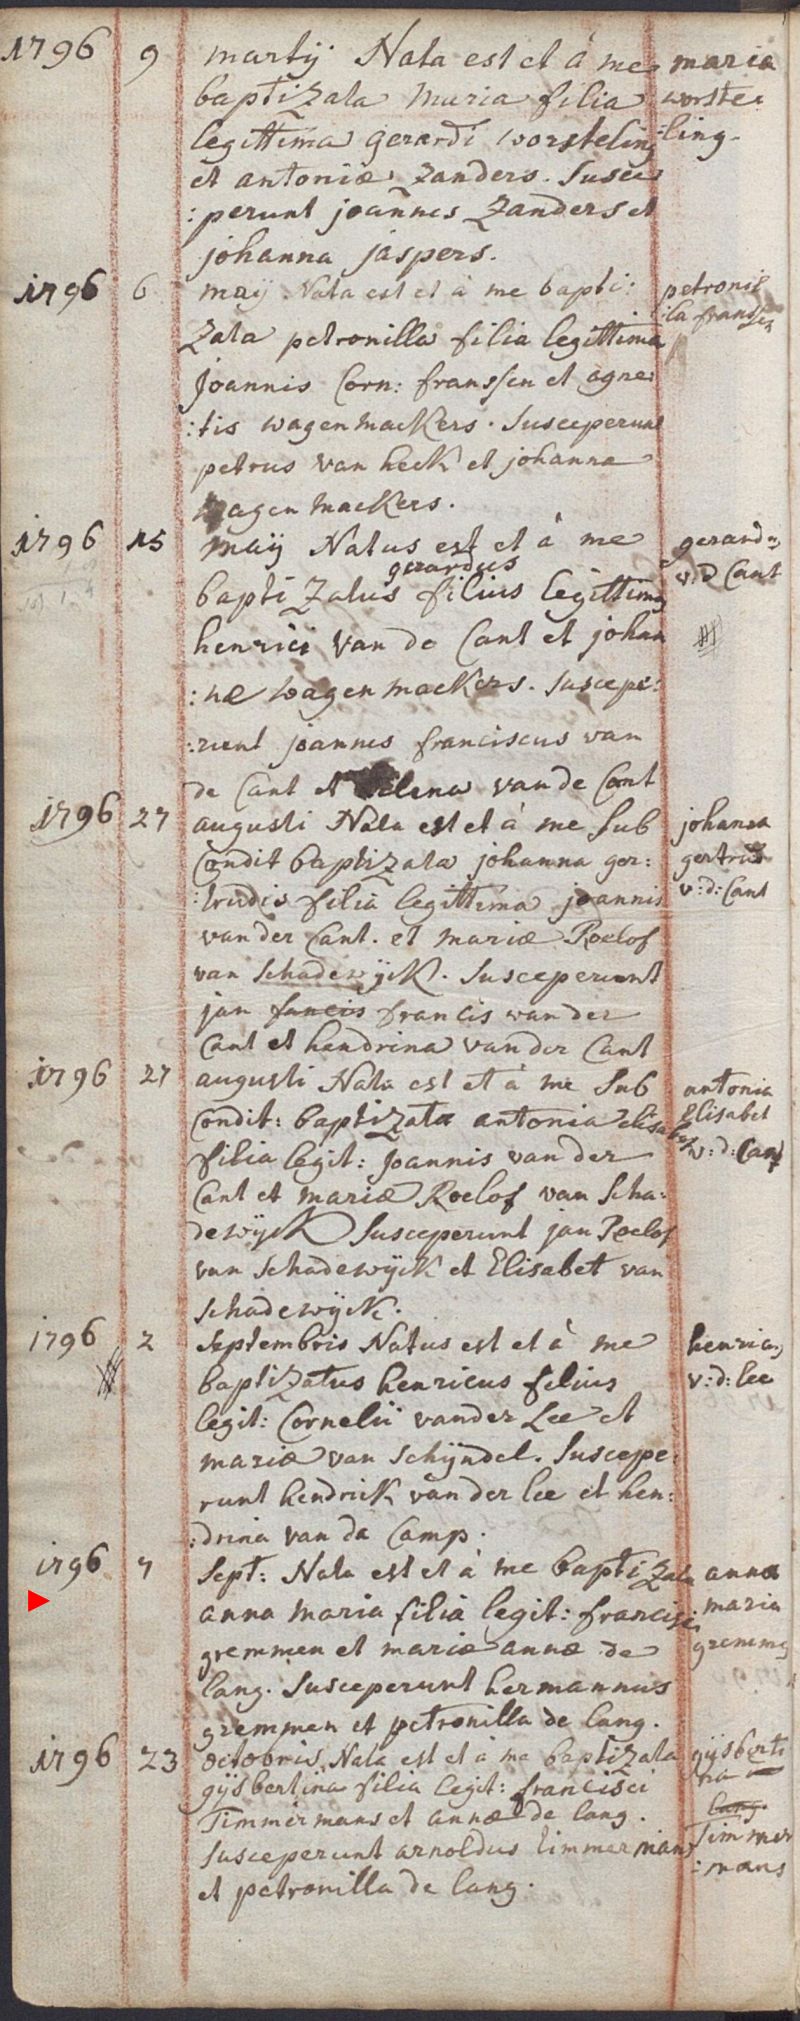 1796 9 martij Nata est et à me maria
baptizata Maria filia worste:
legittima Gerardi worsteling :ling.
et antoniæ Zanders. Susce:
:perunt joannes Zanders et
johanna jaspers.
1796 6 maij Nata est et à me bapti: petronil
zata petronilla filia legittima :la franssen
Joannis Corn: franssen et agne:
:tis wagenmackers. Susceperunt
petrus van heck et johanna
wagenmackers.
1796 15 maij Natus est et à me gerard9
gerardus
baptizatus filius legittimus v:d Cant
henrici van de Cant et johan
:næ wagenmackers. Suscepe:
:runt joannes franciscus van
de Cant et Helena van de Cant
1796 27 augusti Nata est et à me sub johanna
Condit baptizata johanna ger: gertrud
:trudis filia legittima joannis v:d:Cant
van der Cant. et mariæ Roelof
van Schadewijck. Susceperunt
jan francis francis van der
Cant et handrina van der Cant
1796 27 augusti Nata est et à me sub antonia
Condit: baptizata antonia elisabet Elisabet
filia legit: Joannis van der v:d:Cant
Cant et mariæ Roelof van Scha:
dewijck Susceperunt jan Roelof
van Schadewijck et Elisabet van
Schadewijck.
1796 2 Septembris Natus est et à me henric9
baptizatus henricus filius v:d:lee
legit: Cornelii vander Lee et
mariæ van Schijndel. Suscepe:
runt hendrick van der lee et hen:
:drina van de Camp.
1796 7 Sept: Nata est et à me baptizata anna
anna maria filia legit: francisci maria
gremmen et mariæ annæ de gremmen
lang. Susceperunt hermannus
gremmen et petronilla de lang.
1796 23 octobris Nata est et à me baptizata gijsberti
gijsbertina filia legit: francisci na
Timmermans et annæ de lang. lang.
Susceperunt arnoldus timmermans Timmer
et petronilla de lang. :mans